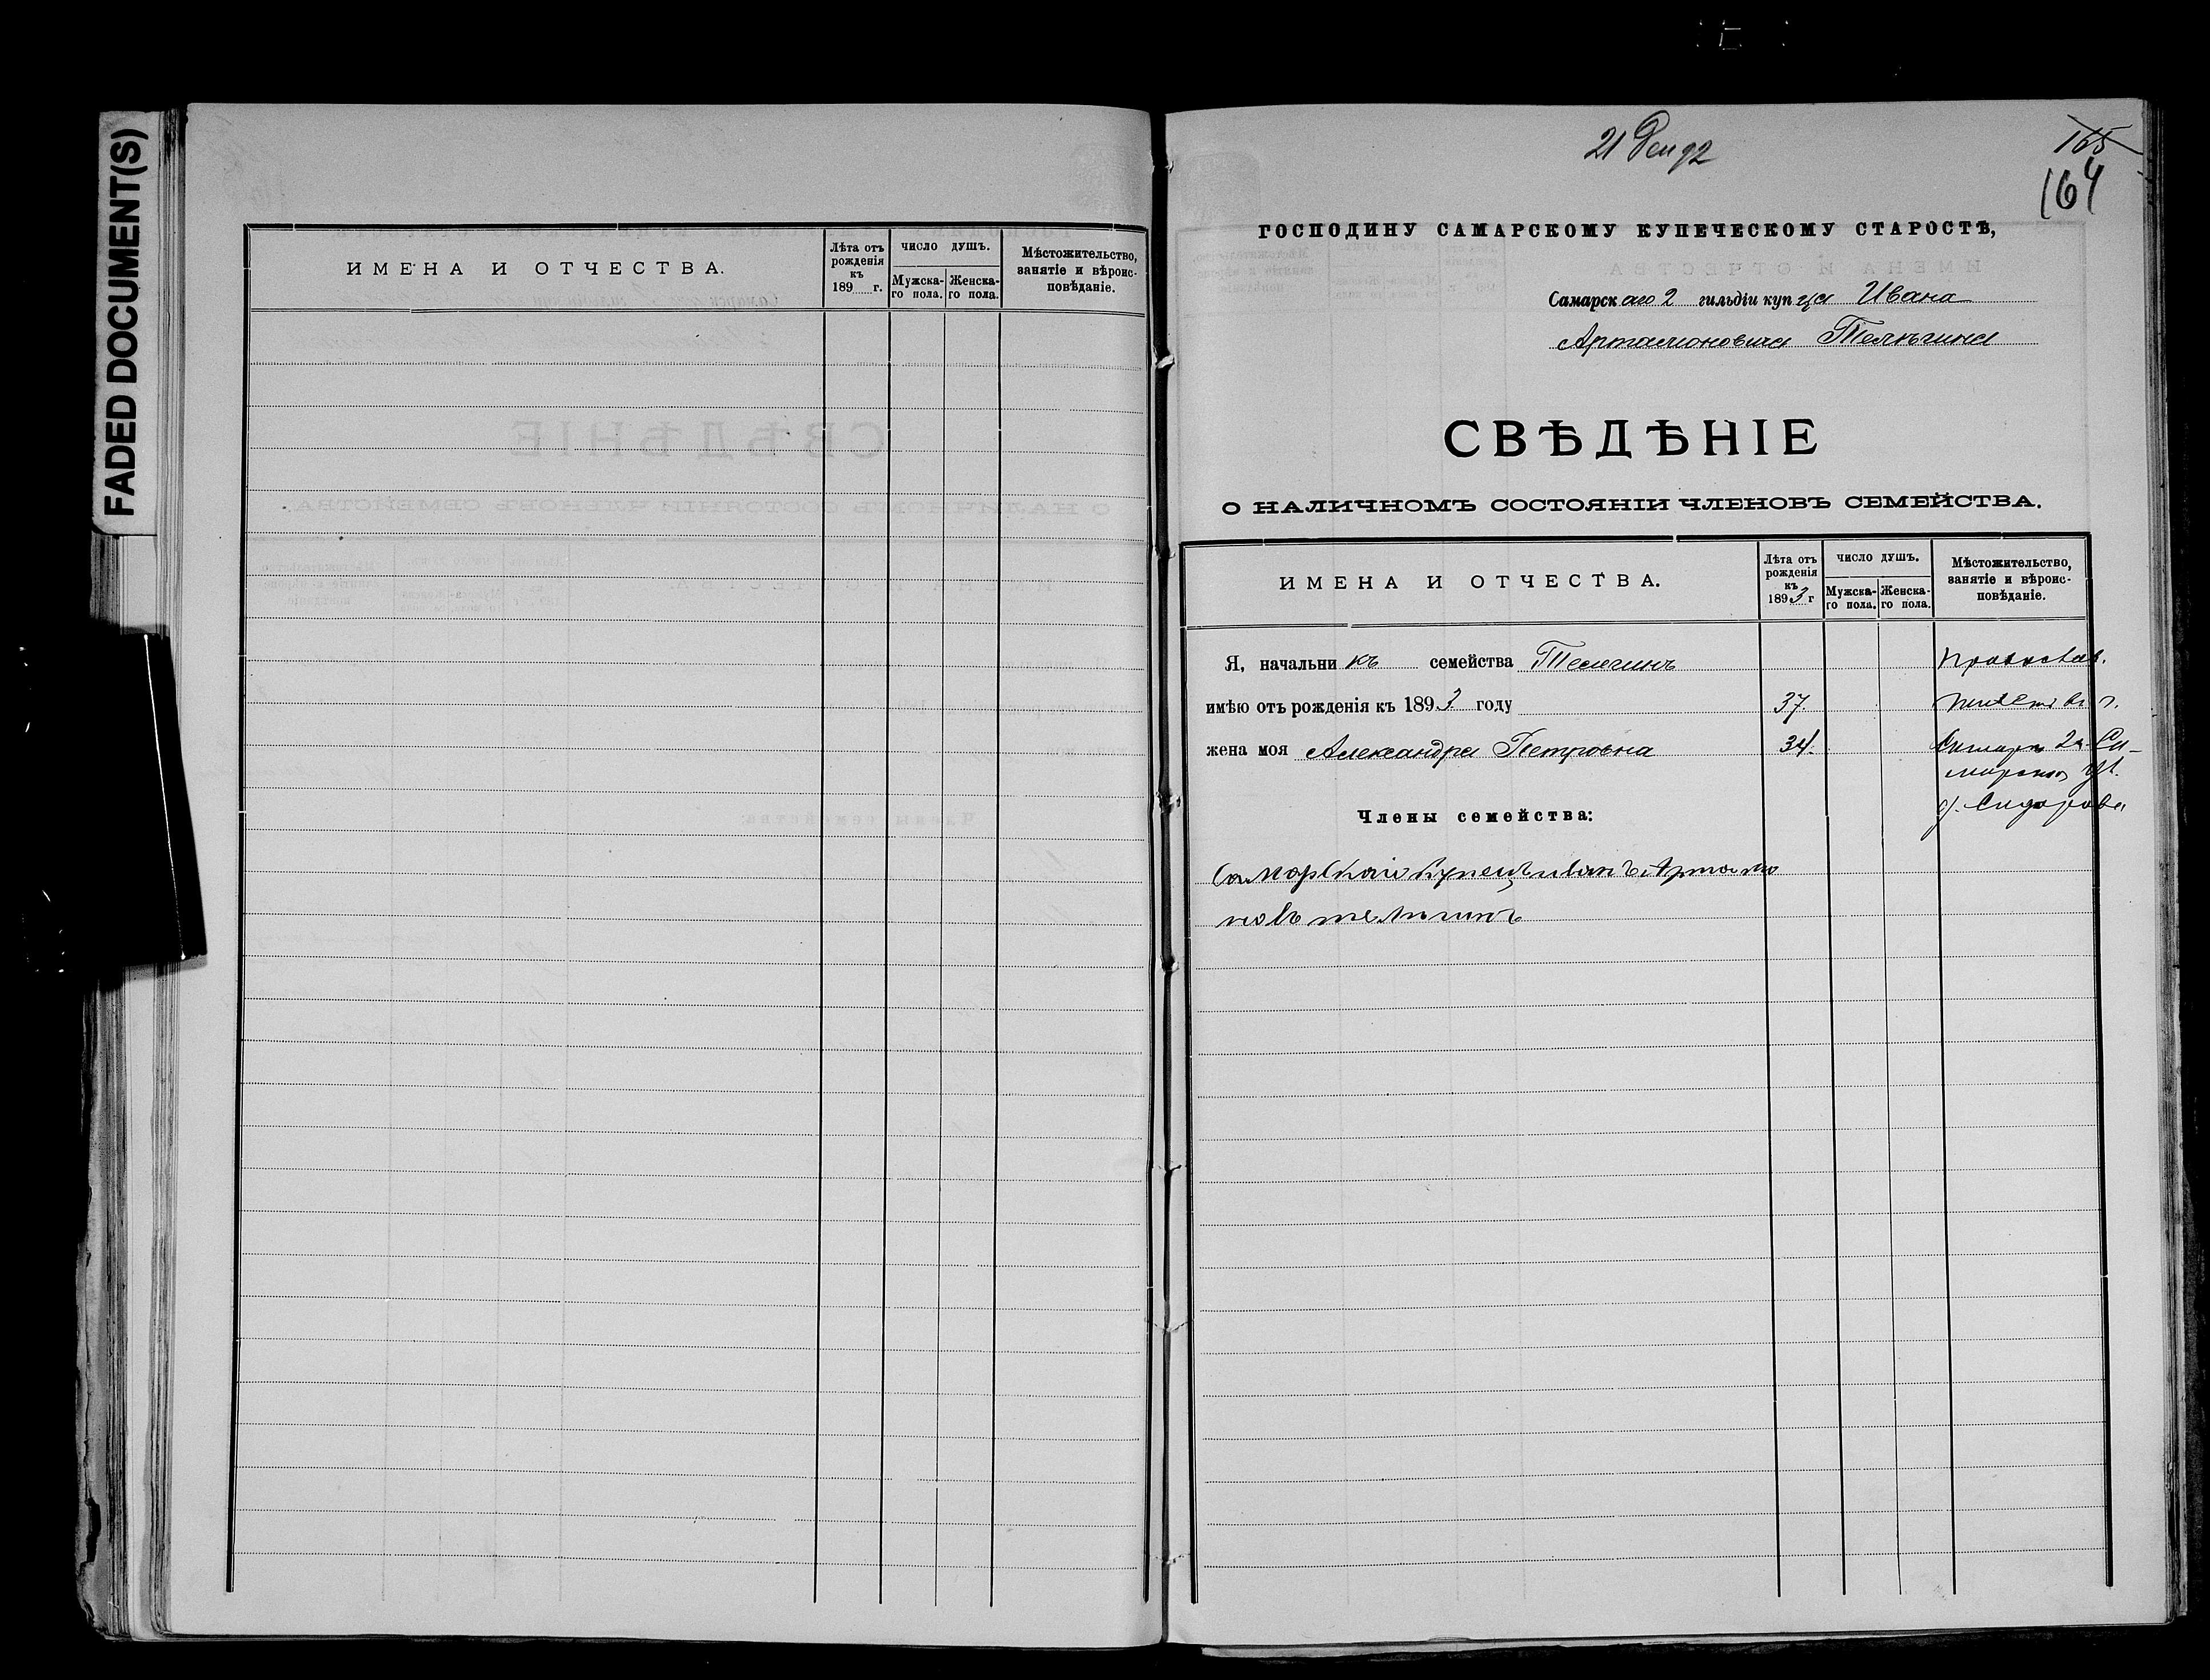 FADED DOCUMENT(S)
ИМЕНА И ОТЧЕСТВА.
Лѣта отъ рожденія къ 189 г.
ЧИСЛО ДУШЪ.
Мужска-го пола.
Женска-го пола.
Мѣстожительство, занятіе и вѣроис-повѣданіе.
21 Дек 92
165
164
ГОСПОДИНУ САМАРСКОМУ КУПЕЧЕСКОМУ СТАРОСТѢ,
Самарскаго 2 гильдіи купца Ивана
Артамоновича Телѣгина
СВѢДѢНІЕ
О НАЛИЧНОМЪ СОСТОЯНІИ ЧЛЕНОВЪ СЕМЕЙСТВА.
ИМЕНА И ОТЧЕСТВА.
Лѣта отъ рожденія къ 1893 г
ЧИСЛО ДУШЪ.
Мужска-го пола.
Женска-го пола.
Мѣстожительство, занятіе и вѣроис-повѣданіе.
Я, начальникъ семейства Телегинъ Православ.
имѣю отъ рожденія къ 1893 году 37 г.
жена моя Александра Петровна 34. Самарѣ 2й Са-
марской ул.
Члены семейства: д. Сидорова
Самарскаіо купецъ иванъ Артамо
новъ телѣгинъ